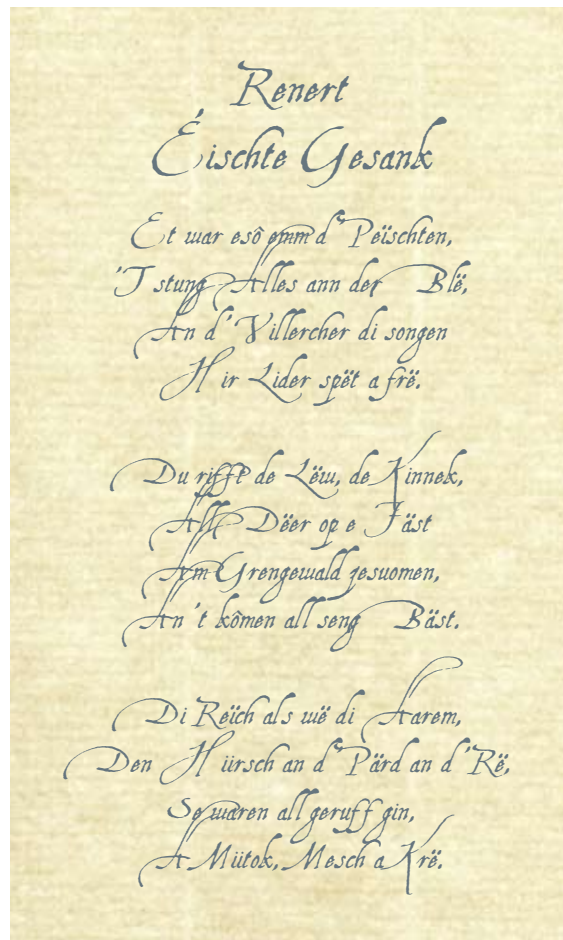 Renert
Éischte Gesank
Et war esô ëmm d'Peischten,
'T stung Alles ann der Blë,
An d'Villercher di songen
Hir Lider spët a frë.
Du rifft de Lëw, de Kinnek,
All Dëer op e Fäst
Am Grengewald zesuomen,
An 't kômen all seng Bäst.
Di Reïch als wë di Aarem,
Den Hiirsch an d'Pärd an d'Rë,
Se waren all geruff gin,
A Miitok, Mesch a Krë.